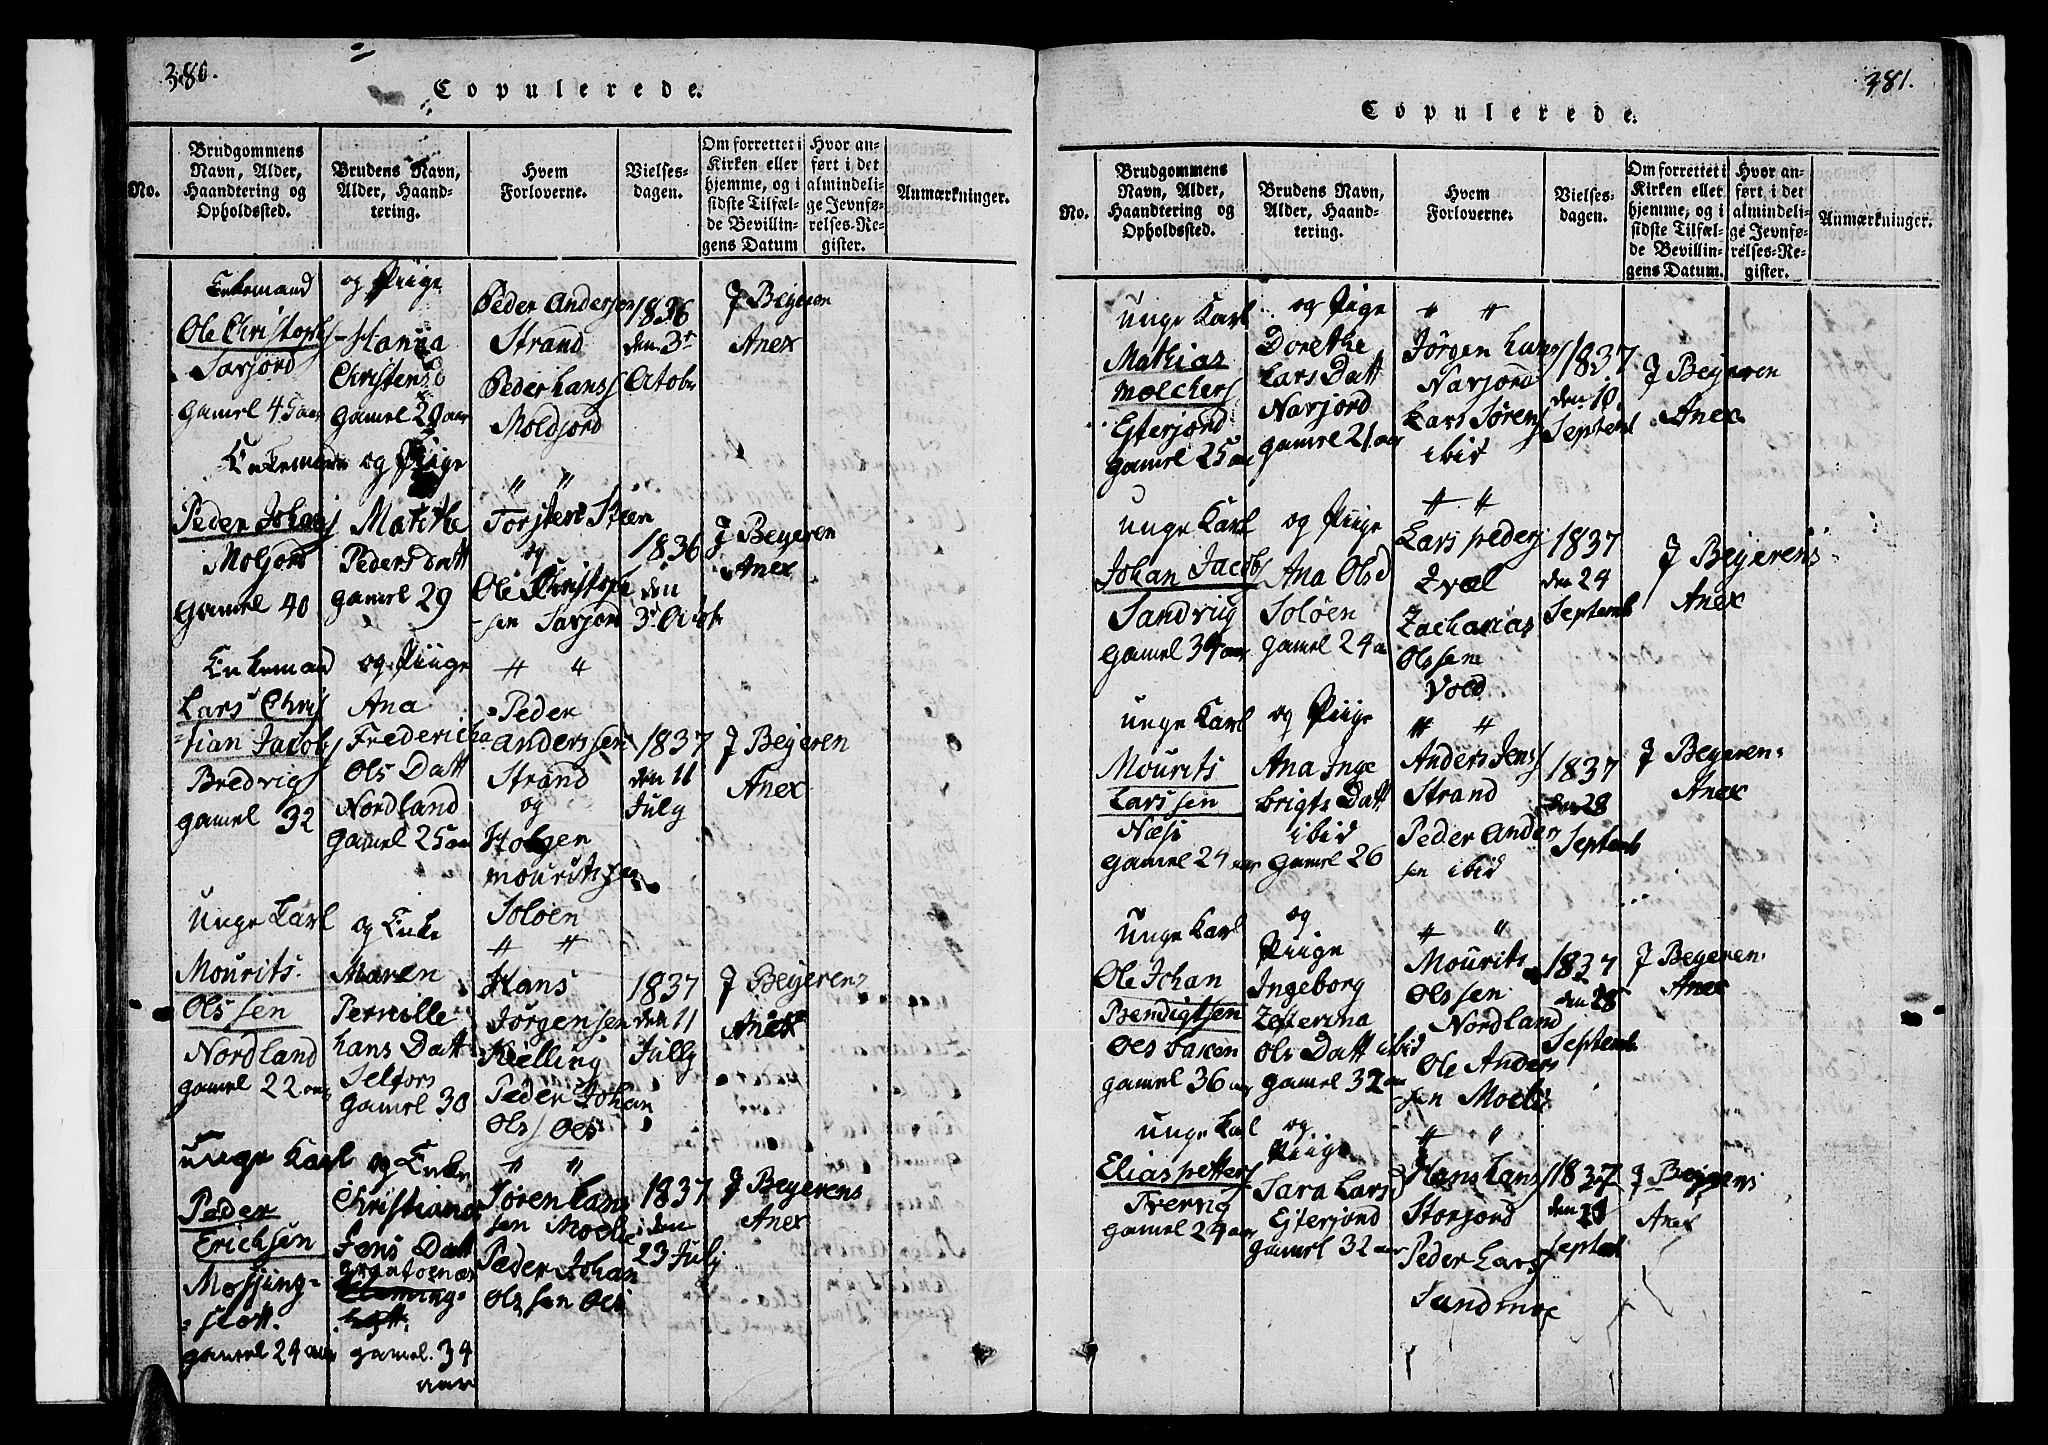 380.
Copulerede.
No.
Brudgommens
Navn, Alder,
Haandtering og
Opholdssted.
Brudens Navn,
Alder, Haand-
tering.
Hvem
Forloverne.
Vielses-
dagen.
Om forrettet i
Kirken eller
hjemme, og i
sidste Tilfæl-
de Bevillin-
gens Datum
Hvor an-
ført i det
almindeli-
ge Jevnfø-
relses-Re-
gister.
Anmærkninger.
Enkemand
Ole Christophs
Savjord
gamel 45 aar
og Piige
Hanna
Christensd
gamel 29 aar
Peder Andersen
Strand
Peder Lanss
Moldjord
1836
den 3t
Octobr
J Beyeren
Anex
Enkemand
Peder Johans
Moljord
gamel 40
og Piige
Peders datt
gamel 29
" "
Torsten Steen
og
Ole Christoph
-sen Savjord
1836
den
3t Octob
J Beyeren
Anex
Enkemand
Lars Chris
-tian Jacobs
Bredvig
gamel 32
og Piige
Ana
Fredericha
Ols Datt
Nordland
gamel 25 aar
" "
Peder
Anderssen
Strand
og
Holgen
mouritssen
Soloen
1837
den 11
July
J Beyeren
Anex
Unge Karl
Mourits
Olssen
Nordland
gamel 22 aar
og Enke
Maren
Pernille
hans Datt
Selfors
gamel 30
" "
Hans
Jørgensen
Kielling
Peder Johan
Olss Oes
1837
den 11
Jully
J Beyerens
Anex
unge Karl
Peder
Erichsen
Messing-
slett.
gamel 24 aar
og Enke
Christiana
Jens Datt
gamel. 34
aar
" "
Søren Lars
sen Moelie
Peder Johan
Olssen Oes
1837
den
23 July
J Beyerens
Anex
381.
Copulerede.
No.
Brudgommens
Navn, Alder,
Haandtering og
Opholdssted.
Brudens Navn,
Alder, Haand-
tering.
Hvem
Forloverne.
Vielses-
dagen.
Om forrettet i
Kirken eller
hjemme, og i
sidste Tilfæl-
de Bevillin-
gens Datum.
Hvor an-
ført i det
almindeli-
ge Jevnfø-
relses-Re-
gister.
Anmærkninger.
Unge Karl
Mathias
Molchers
Eiterjord
gamel 25 aar
og Piige
Dorethe
Lars Datt
Navjord
gamel 21 aar
" "
Jørgen Lans
Navjord
Lars Sørens
ibid
1837
den 10
Septemb
J Beyeren
Anex
unge Karl
Johan Jacobs
Sandvig
gamel 34 aar
og Piige
Ana Olsd
Soløen
gamel 24 a
" "
Lars peders
Zacharias
Olssen
Vold
1837
den 24
Septemb
J Beyerens
Anex
unge Karl
Mourits
Larssen
Næss
gamel 24 aar
og Piige
Ana Inge
brigts Datt
ibid
gamel 26
" "
Anders Jenss
Strand
Peder Anders
sen ibid
1837
den 28
Septemb
J Beyeren
Anex
unge Karl
Ole Johan
Bendigtsen
gamel 36 aar
og
Piige
Ingeborg
Zeferina
Ols Datt ibid
gamel 32 aar
" "
Mourits
Olssen
Nordland
Ole Anders
-sen Moelie
1837
den 28
Septemb
J Beyeren
Anex
unge Karl
Elias petters
Tvervig
gamel 24 aar
og
Piige
Sara Larsd
Eiterjord
gamel 32 aar
" "
Hans Lars
Storjord
Peder Lars
Sandmoe
1837
den
Septemb
J Beyerens
Anex